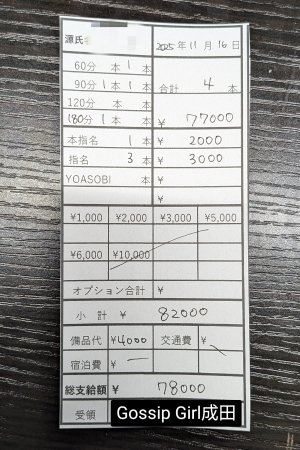 源氏名
2025年11月16日
60分 本 1 本
90分 1 本 1 本 合計 4 本
120分 本
180分 1 本 ¥ 77000
本指名 1 本 ¥ 2000
指名 3 本 ¥ 3000
YOASOBI 本 ¥
¥
¥1,000 ¥2,000 ¥3,000 ¥5,000
¥6,000 ¥10,000
オプション合計 ¥
小計 ¥ 82000
備品代 ¥4000 交通費 ¥
宿泊費 ¥ ー
総支給額 ¥ 78000
受領
Gossip Girl成田